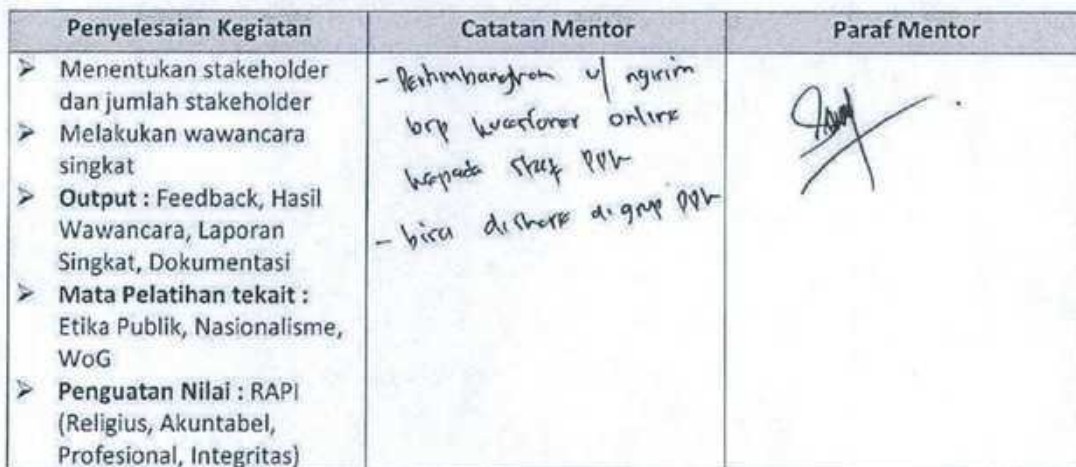 Penyelesaian Kegiatan
Catatan Mentor
Paraf Mentor
➤ Menentukan stakeholder
dan jumlah stakeholder
➤ Melakukan wawancara
singkat
➤ Output : Feedback, Hasil
Wawancara, Laporan
Singkat, Dokumentasi
➤ Mata Pelatihan tekait :
Etika Publik, Nasionalisme,
WoG
➤ Penguatan Nilai : RAPI
(Religius, Akuntabel,
Profesional, Integritas)
- Pertimbangkan u/ ngirim
brp kuesioner online
kepada staf PPK
- bisa dishare di grup PPK